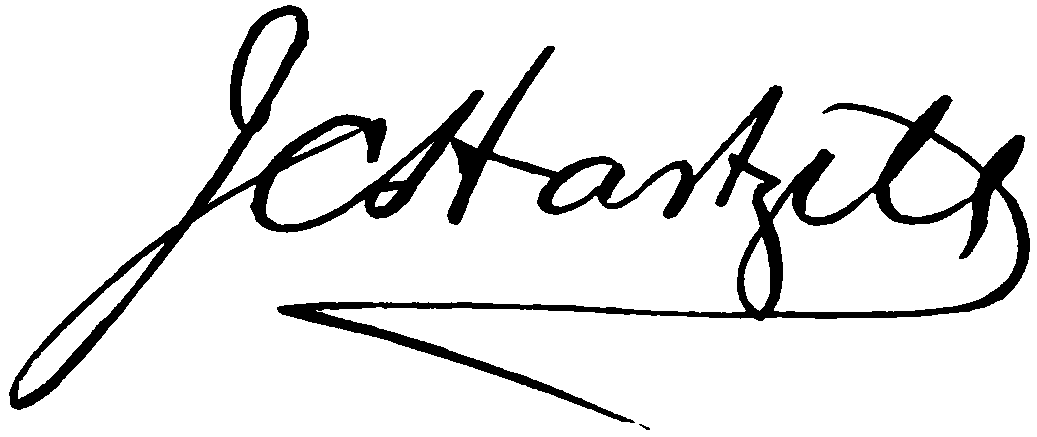 J C Hartzell